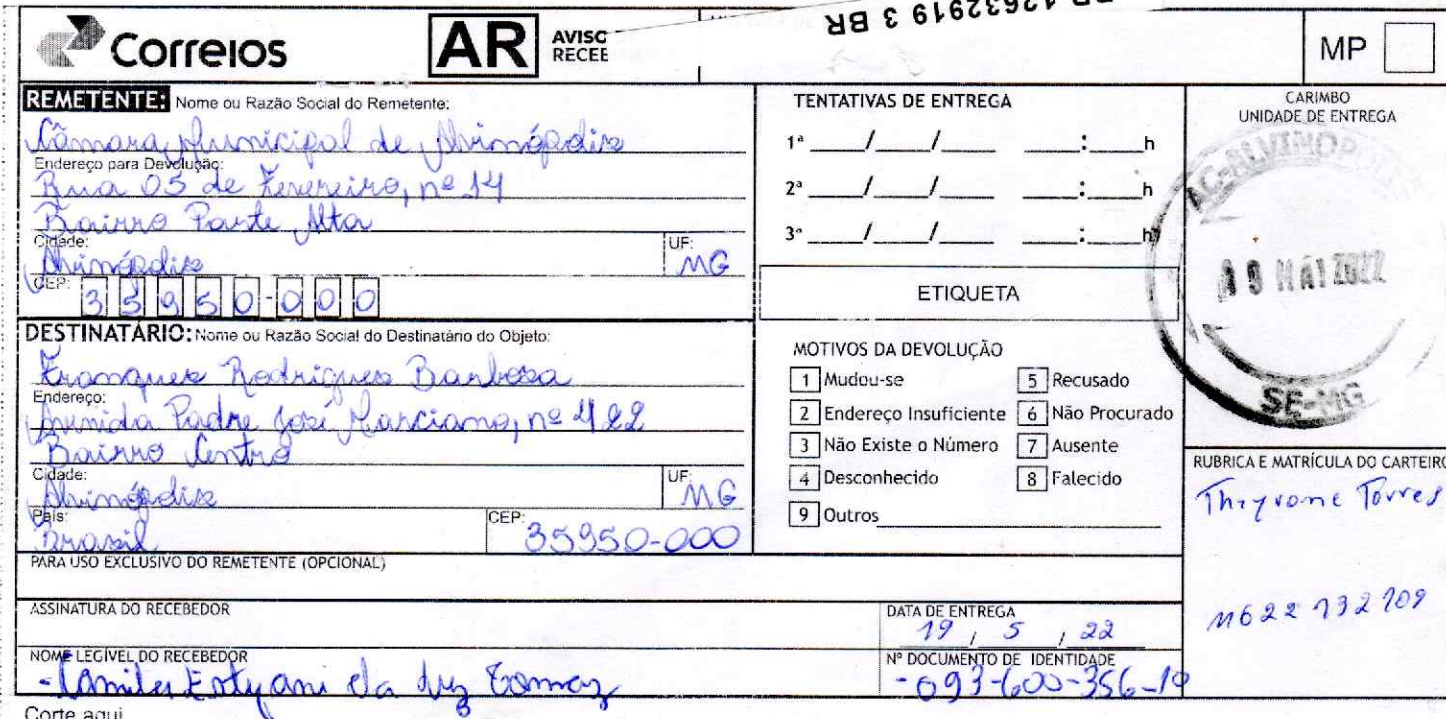 Correios
AR
AVISO
RECEB
12632919 3 BR
MP
REMETENTE: Nome ou Razão Social do Remetente:
Câmara Municipal de Alvinópolis
Endereço para Devolução:
Rua 05 de Fevereiro, nº 14
Bairro Parte Alta
Cidade:
Alvinópolis
UF:
MG
CEP:
35950-000
DESTINATÁRIO: Nome ou Razão Social do Destinatário do Objeto:
Franques Rodrigues Barbosa
Endereço:
Avenida Padre José Marciano, nº 422
Bairro Centro
Cidade:
Alvinópolis
UF:
MG
País:
Brasil
CEP:
35950-000
PARA USO EXCLUSIVO DO REMETENTE (OPCIONAL)
ASSINATURA DO RECEBEDOR
NOME LEGÍVEL DO RECEBEDOR
da Luz Tomaz
DATA DE ENTREGA
19 / 5 / 22
Nº DOCUMENTO DE IDENTIDADE
-093-600-356-10
TENTATIVAS DE ENTREGA
1ª ____/____/____ ____:____h
2ª ____/____/____ ____:____h
3ª ____/____/____ ____:____h
ETIQUETA
MOTIVOS DA DEVOLUÇÃO
1 Mudou-se
2 Endereço Insuficiente
3 Não Existe o Número
4 Desconhecido
9 Outros
5 Recusado
6 Não Procurado
7 Ausente
8 Falecido
CARIMBO
UNIDADE DE ENTREGA
AC-ALVINOPOLIS
19 MAI 2022
SE-MG
RUBRICA E MATRÍCULA DO CARTEIRO
Torres
Corte aqui